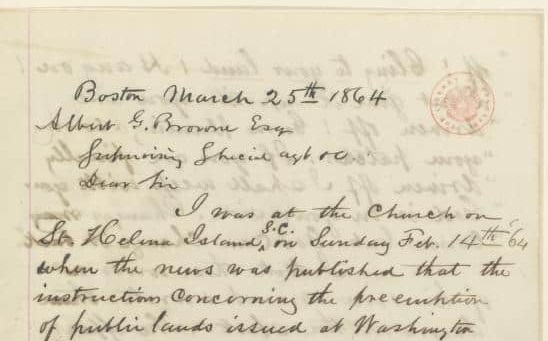 Boston March 25th 1864
Albert G. Browne Esq
Supervising Special agt &c
Dear Sir
I was at the Church on
St. Helena Island, S.C. on Sunday Feb. 14th '64
when the news was published that the
instructions concerning the preemption
of public lands issued at Washington